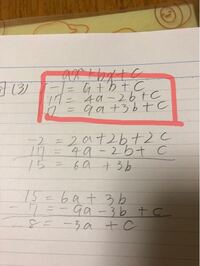 ax²+bx+c
(3) -1 = a+b+c
17 = 4a-2b+c
17 = 9a+3b+c
-2 = 2a+2b+2c
17 = 4a-2b+c
15 = 6a+3b
15 = 6a+3b
17 = -9a-3b+c
8 = -3a+c